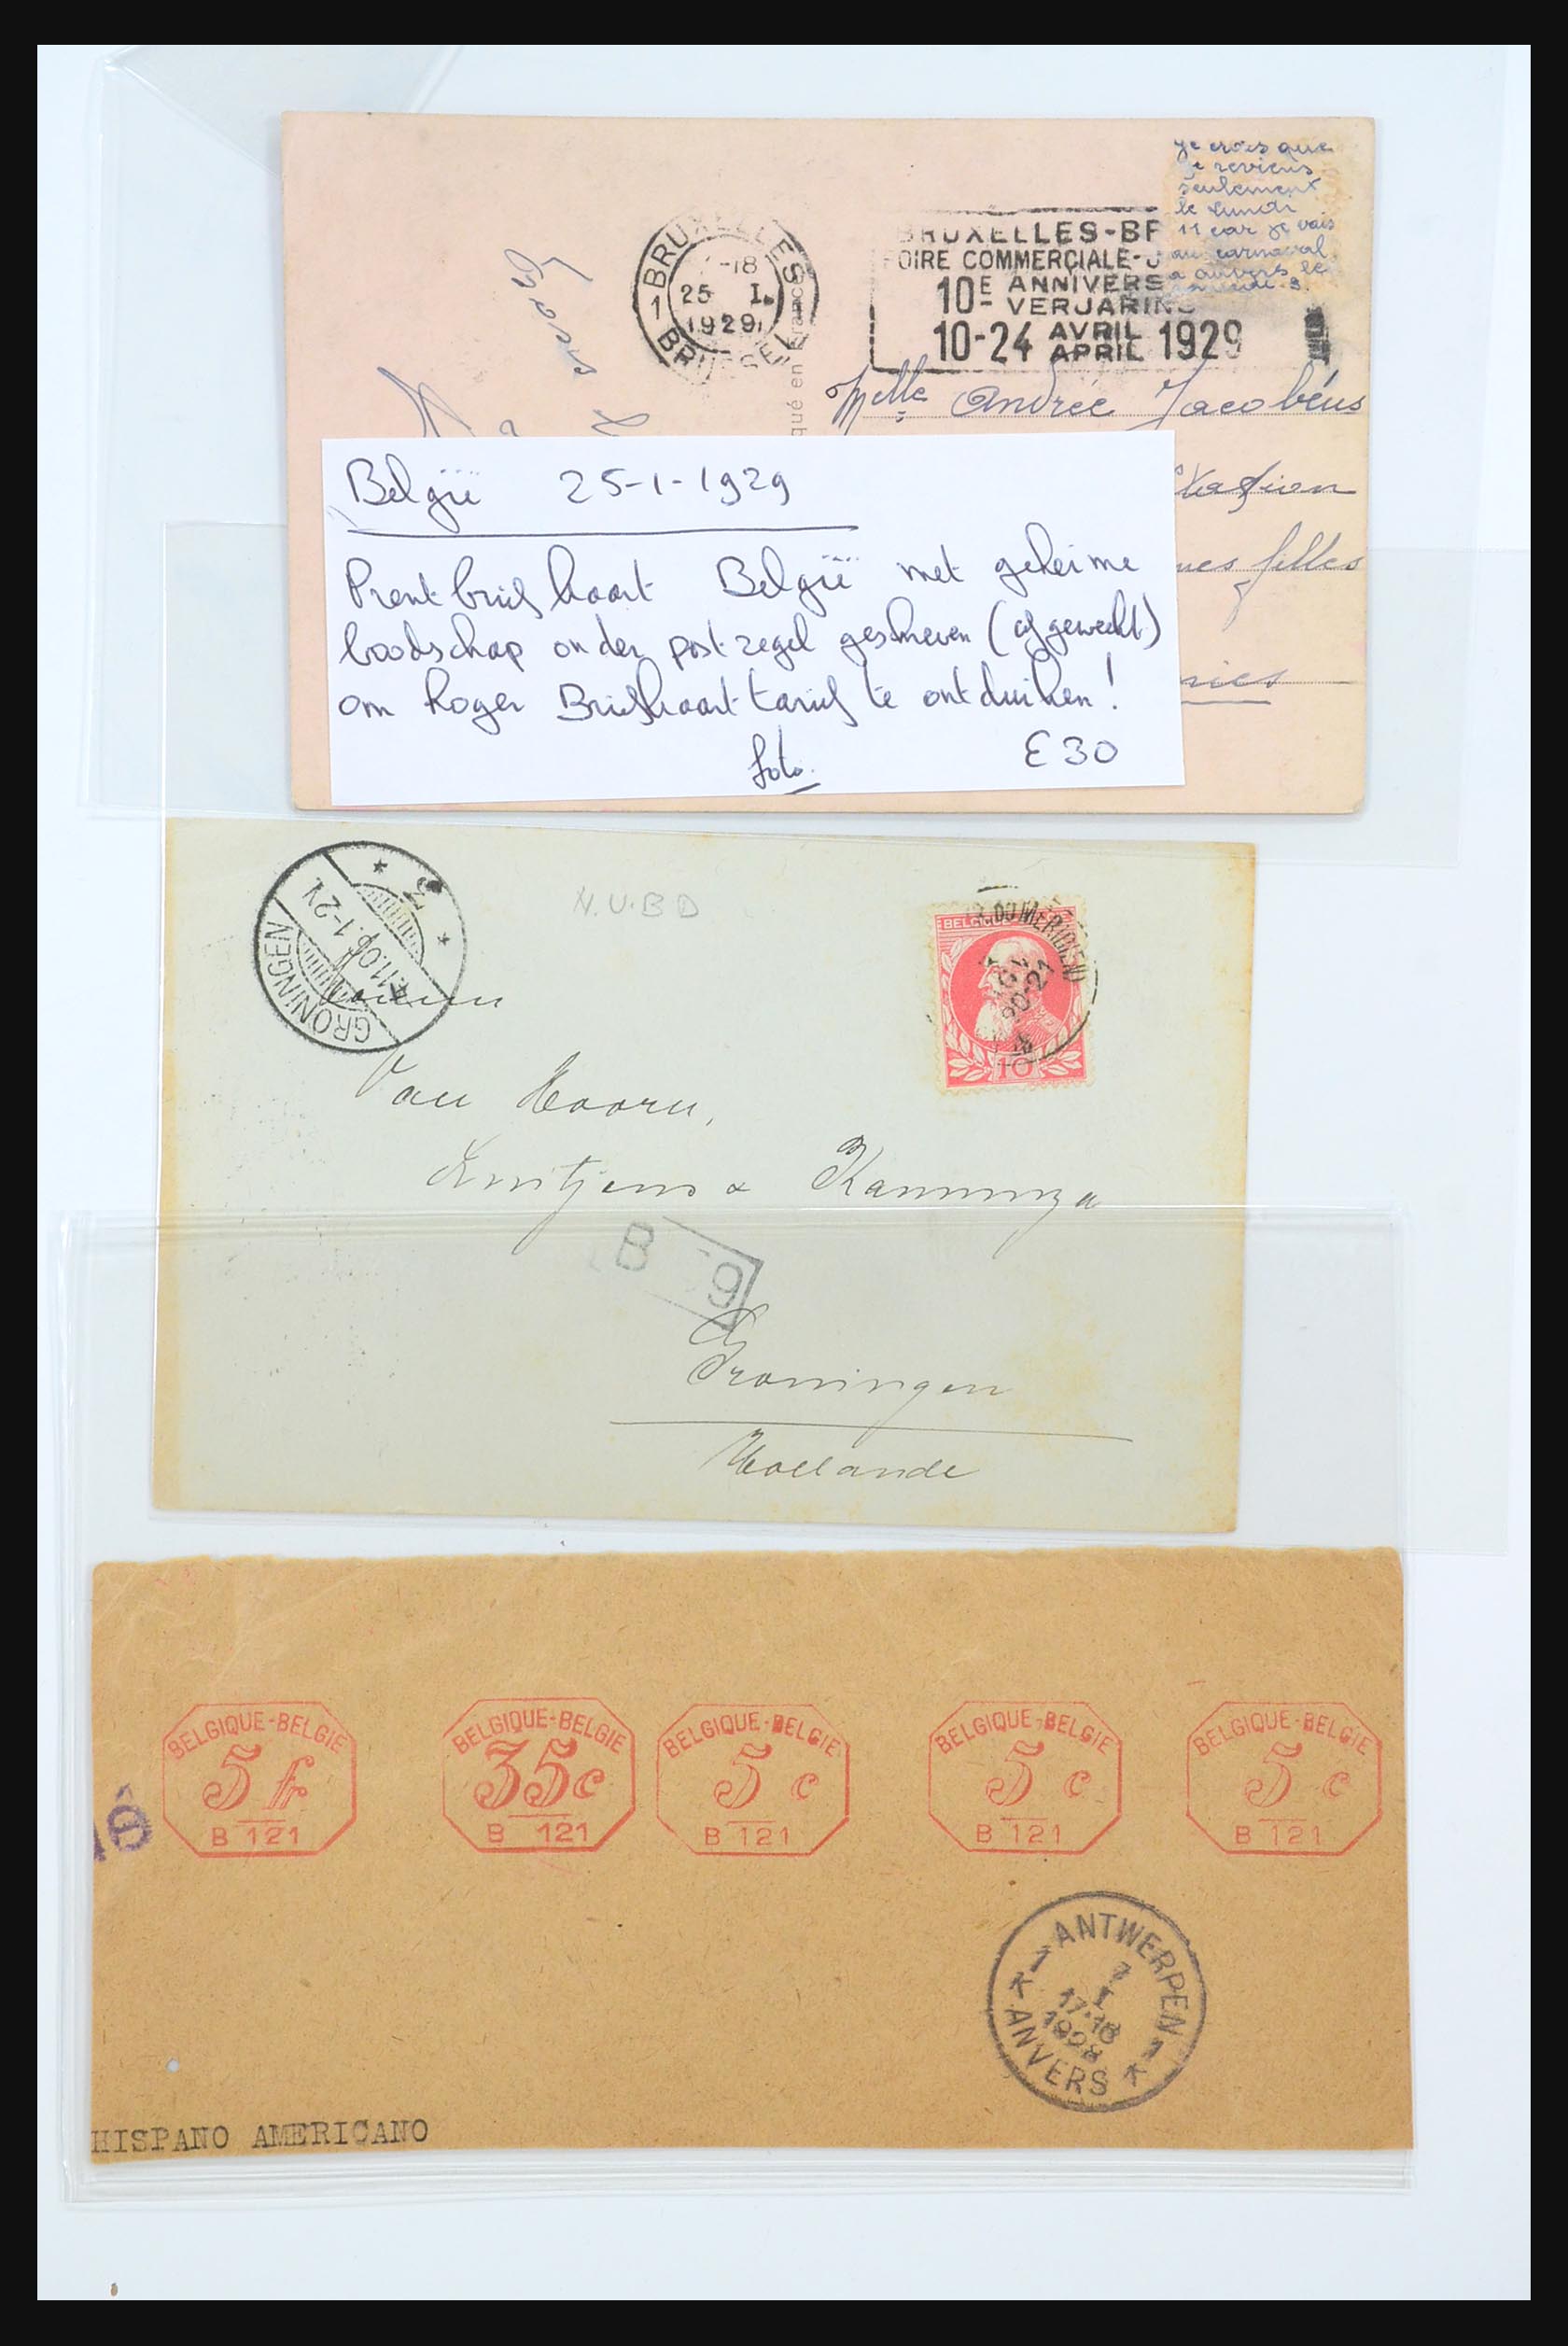 je crois que
je reviens
seulement
le lundi
11 car je vais
au carnaval
a anvers le
3.
BRUXELLES
1 1
-18
25 I
1929
BRUSSEL
BRUXELLES-BR
FOIRE COMMERCIALE-J
10E ANNIVERS
VERJARING
10-24 AVRIL APRIL 1929
qué en France
Melle Andrée Jacobéus
station
nes filles
België 25-1-1929
Prentbriefkaart België met geheime
boodschap onder postzegel geschreven (afgeweekt)
om hoger Briefkaarttarief te ontduiken!
foto. € 30
GRONINGEN
11.06. 1-2V
3
N.U.B D
BELGI
DU MERIDIEN)
20-21
10
Van Hoorn,
& Kamminga
B 9
Groningen
Hollande
BELGIQUE-BELGIE
5 fr
B 121
BELGIQUE-BELGIE
35 c
B 121
BELGIQUE-BELGIE
5 c
B 121
BELGIQUE-BELGIE
5 c
B 121
BELGIQUE-BELGIE
5 c
B 121
1 ANTWERPEN 1
I
17-18
1928
K ANVERS K
HISPANO AMERICANO